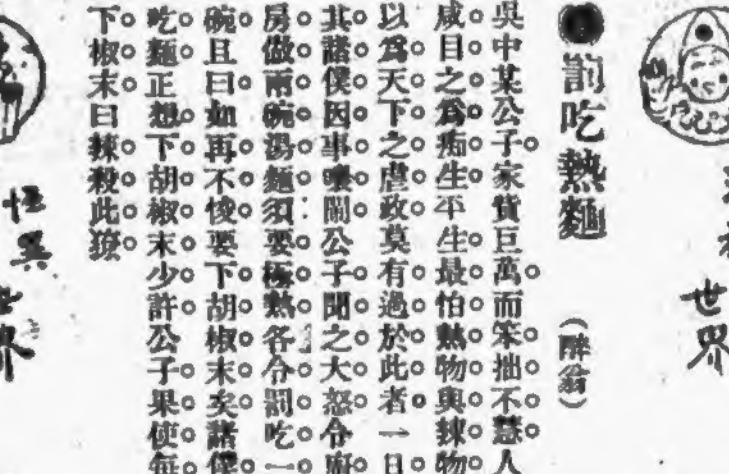 世界
罰吃熱麵
（醉翁）
吳中某公子家貲巨萬而笨拙不慧人
咸目之爲痴生平生最怕熱物與辣物
以爲天下之虐政莫有過於此者一日
其諸僕因事嚷鬧公子聞之大怒令廚
房做兩碗湯麵須要極熱各令罰吃一
碗且曰如再不悛要下胡椒末矣諸僕
吃麵正想下胡椒末少許公子果使每
下椒末曰辣殺此獠
怪異世界